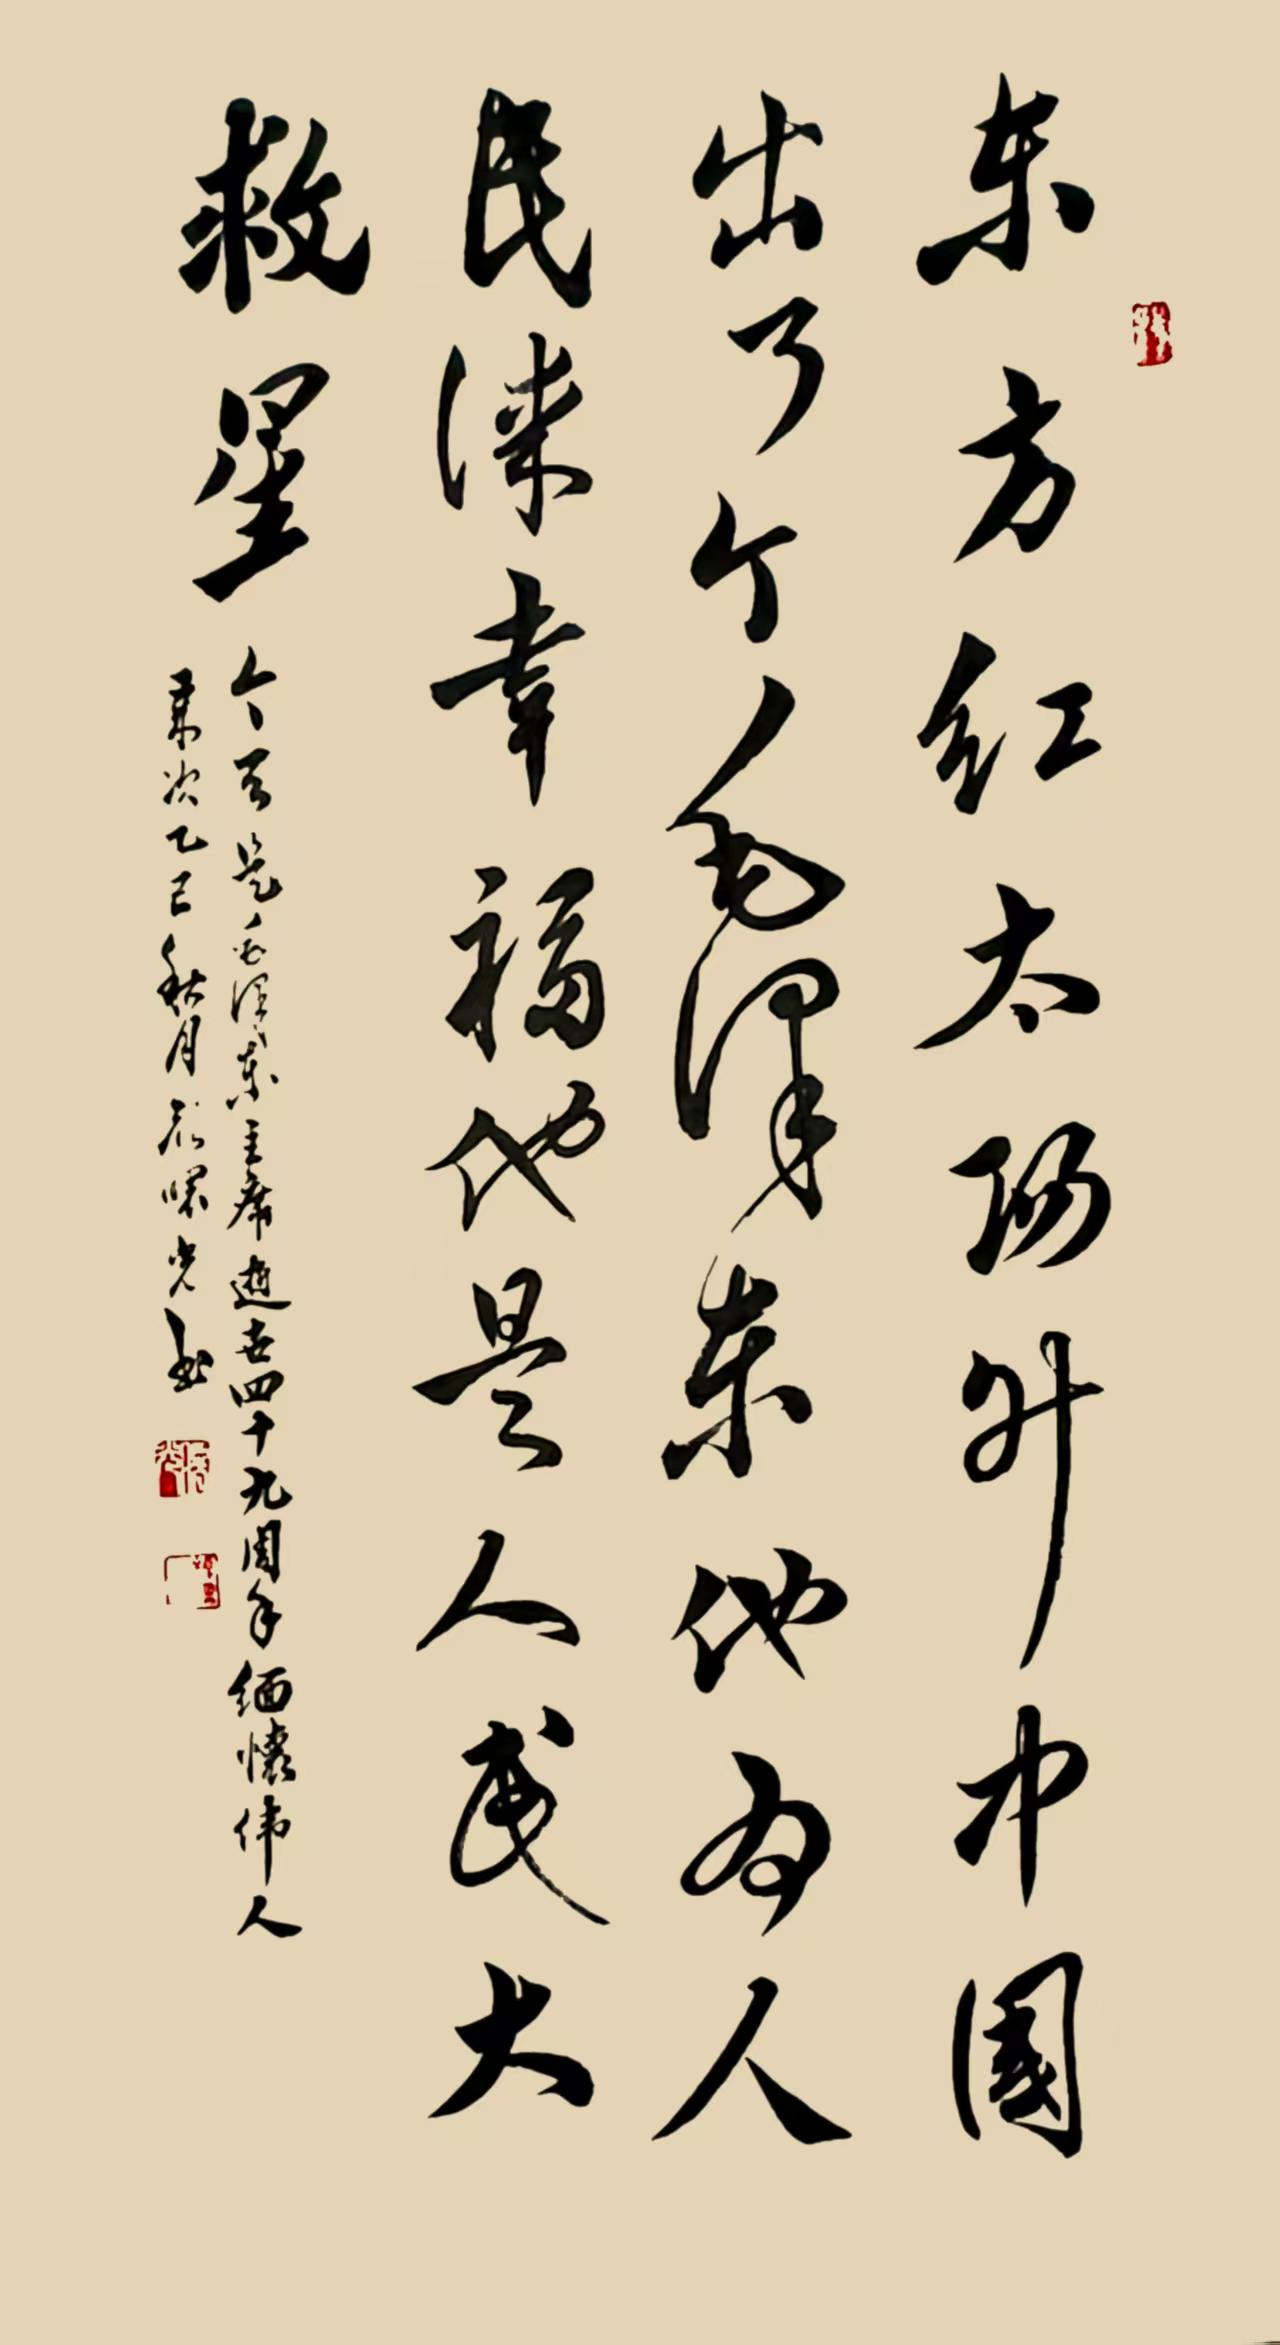 东方红太阳升中国
出了个毛泽东他为人
民谋幸福他是人民大
救星
今天是毛泽东主席逝世四十九周年缅怀伟人
乙巳秋月
光书